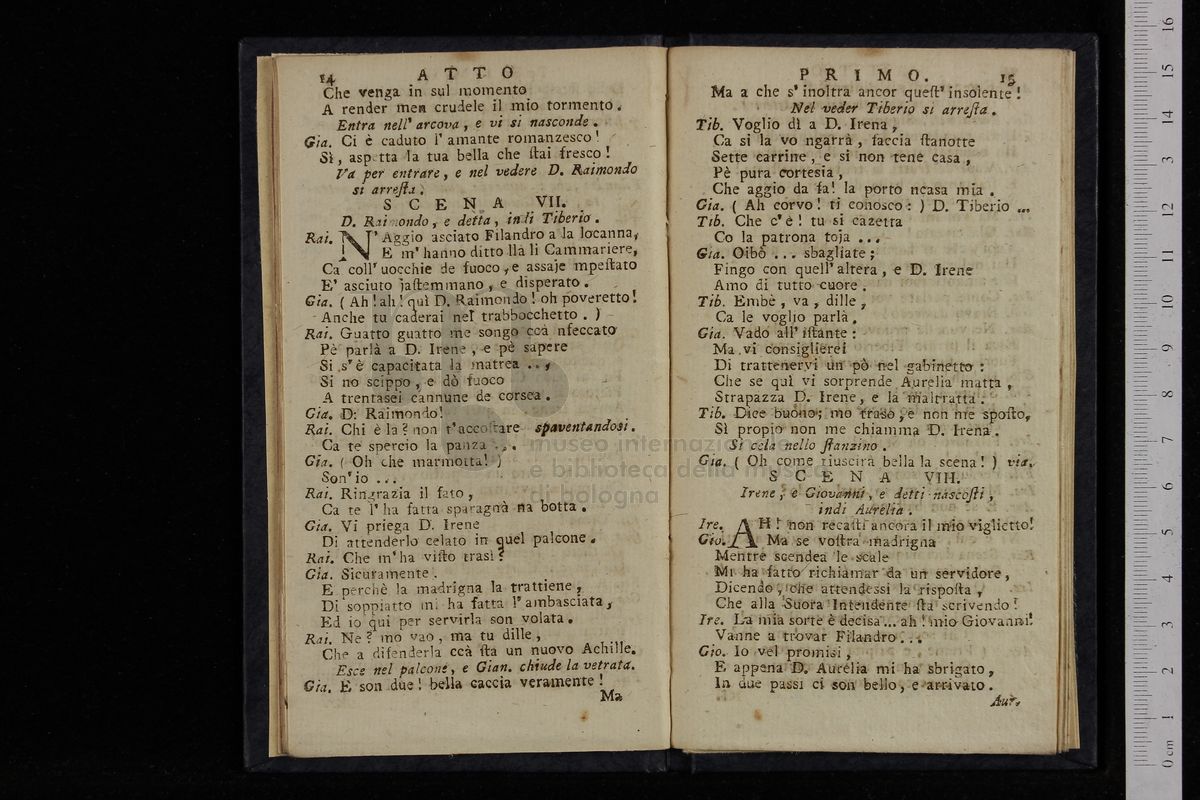 14 ATTO
Che venga in sul momento
A render men crudele il mio tormento.
Entra nell' arcova, e vi si nasconde.
Gia. Ci è caduto l'amante romanzesco!
Sì, aspetta la tua bella che ſtai freſco!
Va per entrare, e nel vedere D. Raimondo
si arreſta.
SCENA VII.
D. Raimondo, e detta, indi Tiberio.
Rai. N'Aggio asciato Filandro a la locanna,
E m'hanno ditto llà li Cammariere,
Ca coll' uocchie de fuoco, e assaje mpeſtato
E' asciuto jaſtemmanno, e disperato.
Gia. (Ah! ah! quì D. Raimondo! oh poveretto!
Anche tu caderai nel trabbocchetto.)
Rai. Guatto guatto me songo ccà nfeccato
Pè parlà a D. Irene, e pè sapere
Si s'è capacitata la matrea ...
Si no scippo, e dò fuoco
A trentasei cannune de corsea.
Gia. D: Raimondo!
Rai. Chi è la? non t'accoſtare spaventandosi.
Ca te spercio la panza ...
Gia. (Oh che marmotta!)
Son' io ...
Rai. Ringrazia il fato,
Ca te l'ha fatta sparagnà na botta.
Gia. Vi priega D. Irene
Di attenderlo celato in quel palcone.
Rai. Che m'ha viſto trasì?
Gia. Sicuramente.
E perchè la madrigna la trattiene,
Di soppiatto mi ha fatta l'ambasciata,
Ed io qui per servirla son volata.
Rai. Ne? mo vao, ma tu dille,
Che a difenderla ccà ſta un nuovo Achille.
Esce nel palcone, e Gian. chiude la vetrata.
Gia. E son due! bella caccia veramente!
Ma
PRIMO. 15
Ma a che s'inoltra ancor queſt' insolente!
Nel veder Tiberio si arreſta.
Tib. Voglio dì a D. Irena,
Ca si la vo ngarrà, faccia ſtanotte
Sette carrine, e si non tene casa,
Pè pura cortesia,
Che aggio da fa! la porto ncasa mia.
Gia. (Ah corvo! ti conosco:) D. Tiberio ...
Tib. Che c'è! tu si cazetta
Co la patrona toja ...
Gia. Oibò ... sbagliate;
Fingo con quell' altera, e D. Irene
Amo di tutto cuore.
Tib. Embè, va, dille,
Ca le voglio parlà.
Gia. Vado all' iſtante:
Ma vi consiglierei
Di trattenervi un pò nel gabinetto:
Che se quì vi sorprende Aurelia matta,
Strapazza D. Irene, e la maltratta.
Tib. Dice buono; mo traso, e non me spoſto,
Sì propio non me chiamma D. Irena.
Si cela nello ſtanzino.
Gia. (Oh come riuscirà bella la scena!) via.
SCENA VIII.
Irene, e Giovanni, e detti nascoſti,
indi Aurelia.
Ire. AH! non recaſti ancora il mio viglietto!
Gio. Ma se voſtra madrigna
Mentre scendea le scale
Mi ha fatto richiamar da un servidore,
Dicendo, che attendessi la rispoſta,
Che alla Suora Intendente ſta scrivendo!
Ire. La mia sorte è decisa... ah! mio Giovanni!
Vanne a trovar Filandro ...
Gio. Io vel promisi,
E appena D. Aurelia mi ha sbrigato,
In due passi ci son bello, e arrivato.
Aur.
museo internazionale
e biblioteca della musica
di bologna
0 cm 1 2 3 4 5 6 7 8 9 10 11 12 13 14 15 16